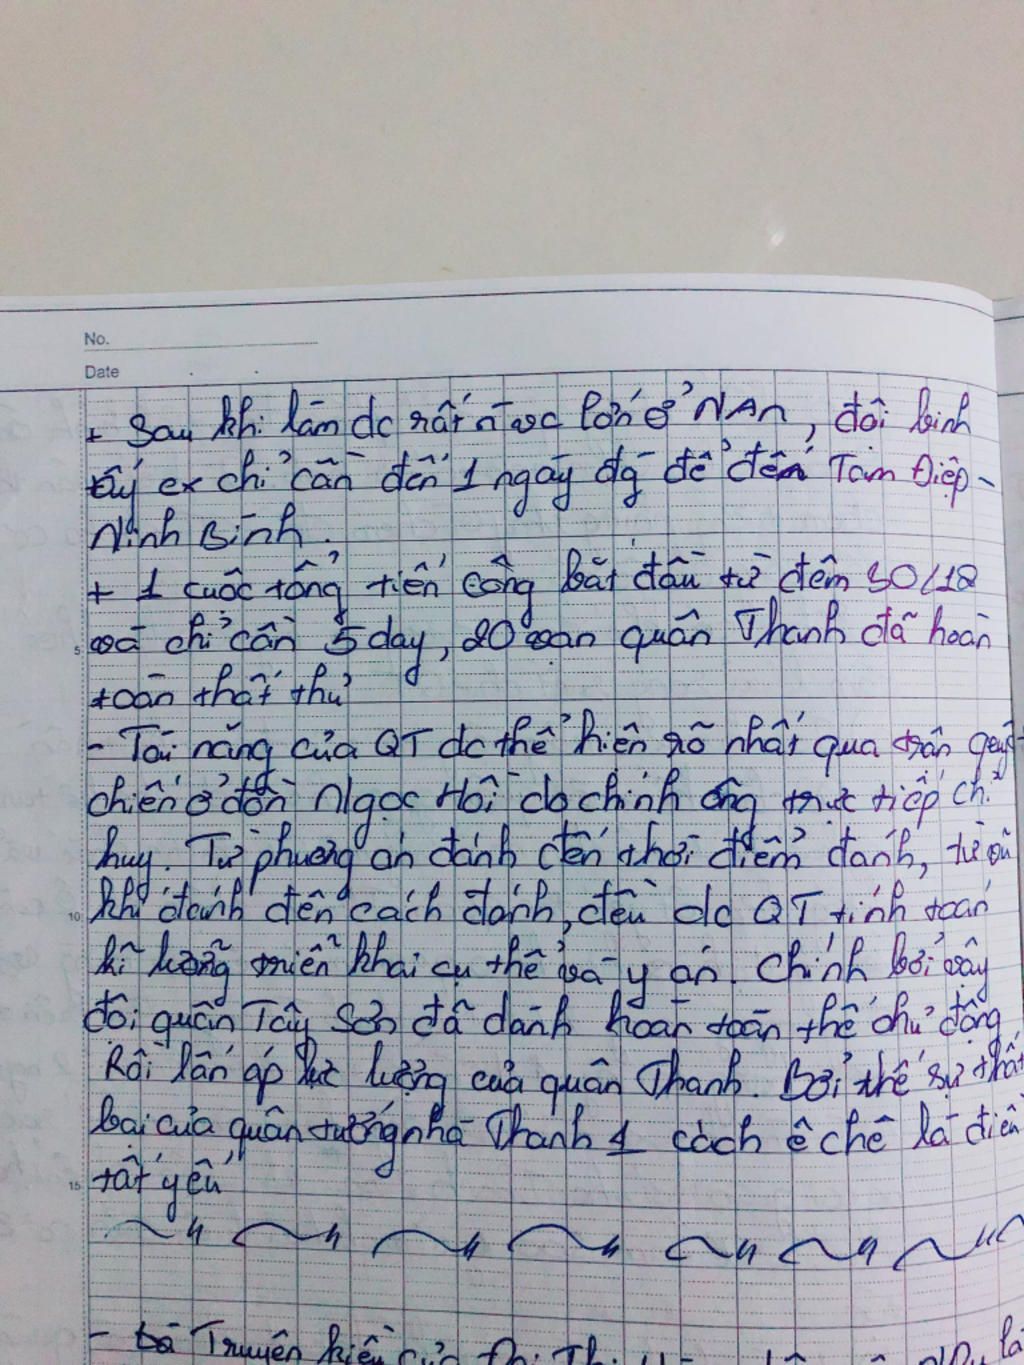 No.
Date
+ Sau khi làm dc rất n vc lớn ở NAn, đội binh
ấy ex chỉ cần đến 1 ngày đg để đến Tam Điệp -
Ninh Bình.
+ 1 cuộc tổng tiến công bắt đầu từ đêm 30/12
và chỉ cần 5 day, 20 vạn quân Thanh đã hoàn
toàn thất thủ
- Tài năng của QT dc thể hiện rõ nhất qua trận quyết
chiến ở đồn Ngọc Hồi do chính ông trực tiếp chỉ
huy. Từ phương án đánh đến thời điểm đánh, từ vũ
khí đánh đến cách đánh, đều dc QT tính toán
kĩ lưỡng triển khai cụ thể và y án. Chính bởi vậy
đội quân Tây Sơn đã dành hoàn toàn thế chủ động
Rồi lấn áp lực lượng của quân Thanh. Bởi thế sự thất
bại của quân tướng nhà Thanh 1 cách ê chề là điều
tất yếu
5
10
15
- Truyện Kiều của